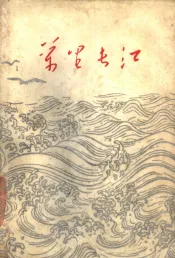 万里长江